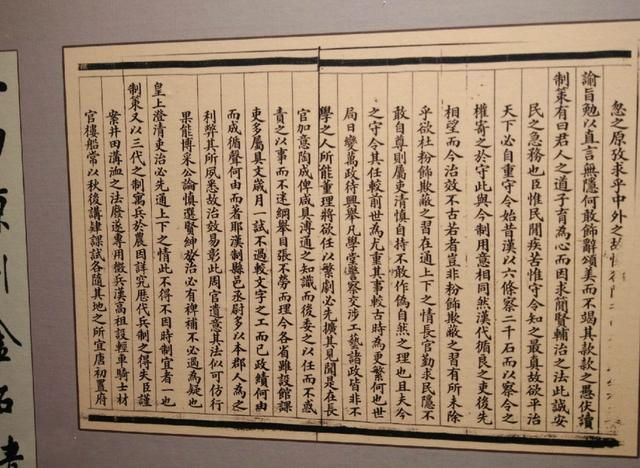 忽之原孜求乎中外之故
諭旨勉以直言無隱何敢飾辭頌美而不竭其款款之愚伏讀
制策有曰君人之道子育為心而因求簡賢輔治之法此誠安
民之急務也臣惟民間疾苦惟守令知之最真故欲平治
天下必自重守令始昔漢以六條察二千石而以察令之
權寄之於守此與今制用意相同然漢代循良之吏後先
相望而今治效不古若者豈非粉飾欺蔽之習有所未除
乎欲杜粉飾欺蔽之習在通上下之情長官勤求民隱不
敢自尊則屬吏清慎自持不敢作偽自然之理也且夫今
之守令其任較前世為尤重其事較古時為更繁何也世
局日變萬政待興舉凡學堂警察交涉工藝諸政皆非不
學之人所能董理將欲任以繁劇必先擴其見聞是在長
官加意陶成俾咸具溥通之知識而後委之以任而不惑
責之以事而不迷綱舉目張不勞而理今各省雖設館課
吏多屬具文歲月一試不過較文字之工而已政績何由
而成循聲何由而著耶漢制縣邑丞尉多以本郡人為之
利弊其所夙悉故治效易彰此周官遺意其法似可仿行
果能博采公論慎選賢紳於治必有裨補不必過為疑也
皇上澄清吏治必先通上下之情此不得不因時制宜者一也
制策又以三代之制寓兵於農因詳究歷代兵制之得失臣謹
案井田溝洫之法廢遂專用徵兵漢高祖設輕車騎士材
官樓船常以秋後講肄課試各隨其地之所宜唐初置府